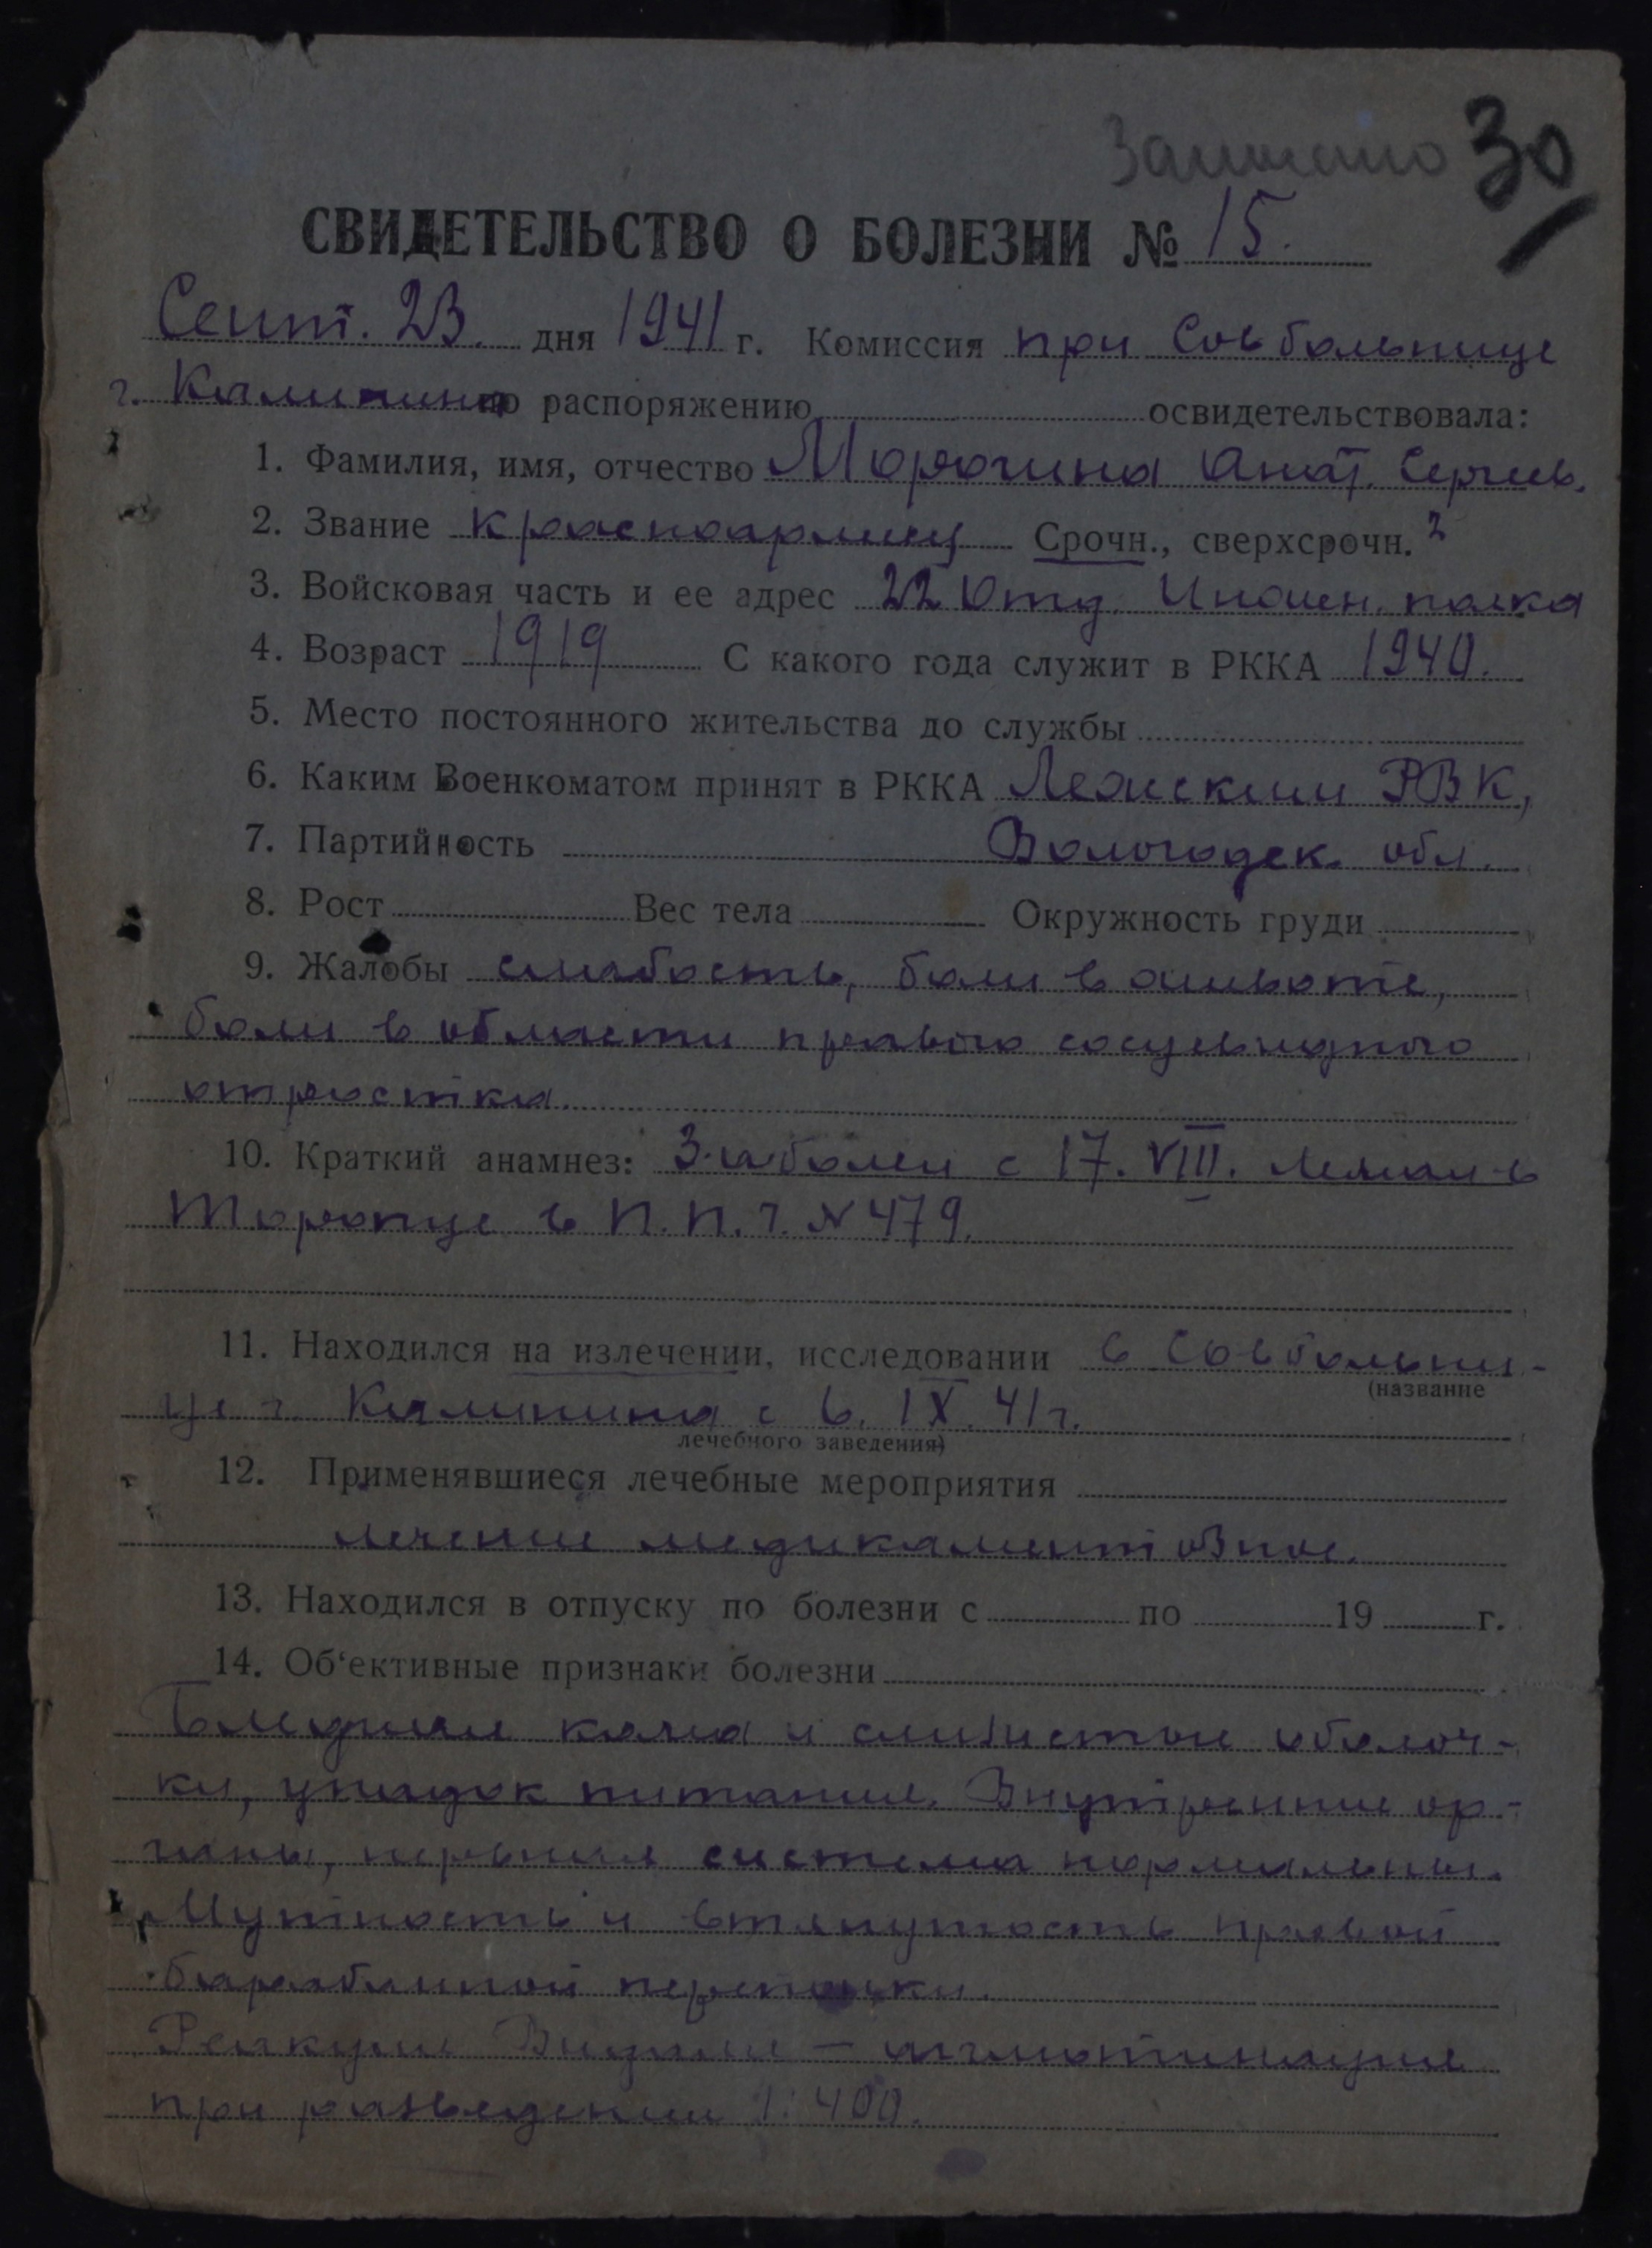 Записано 30
СВИДЕТЕЛЬСТВО О БОЛЕЗНИ № 15.
Сент. 23. дня 1941 г. Комиссия при Совбольнице
г. Калинина по распоряжению освидетельствовала:
1. Фамилия, имя, отчество Морогина Анат. Сергеев.
2. Звание красноармеец Срочн., сверхсрочн.
3. Войсковая часть и ее адрес 22 Отд. Инжен. полка
4. Возраст 1919 С какого года служит в РККА 1940.
5. Место постоянного жительства до службы
6. Каким Военкоматом принят в РККА Лежским РВК,
7. Партийность Вологодск. обл.
8. Рост Вес тела Окружность груди
9. Жалобы слабость, боли в животе,
боли в области правого сосцевидного
отростка.
10. Краткий анамнез: Заболел с 17. VIII. Лежал в
Торопце в П.П.Г. N 479.
11. Находился на излечении, исследовании в Совбольни-
(название
це г. Калинина с 6. IX. 41 г.
лечебного заведения)
12. Применявшиеся лечебные мероприятия
лечение медикаментозное.
13. Находился в отпуску по болезни с по 19 г.
14. Об'ективные признаки болезни
Бледная кожа и слизистые оболоч-
ки, упадок питания. Внутренние ор-
ганы, нервная система нормальны.
Мутность и втянутость правой
барабанной перепонки.
Реакция Видаля — агглютинация
при разведении 1:400.